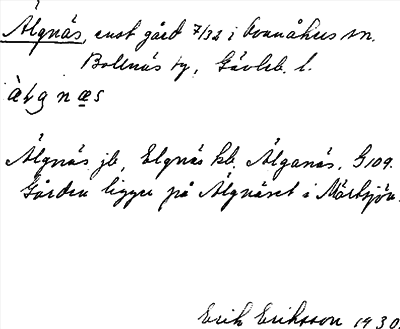 Älgnäs, enst gård 7/32 i Ovanåkers sn.
Bollnäs ty, Gävleb. l.
àlgnæs
Älgnäs jb, Elgnäs kb. Älganäs, G 109.
Gården ligger på Älgnäset i Mårtsjön.
Erik Eriksson 1930.